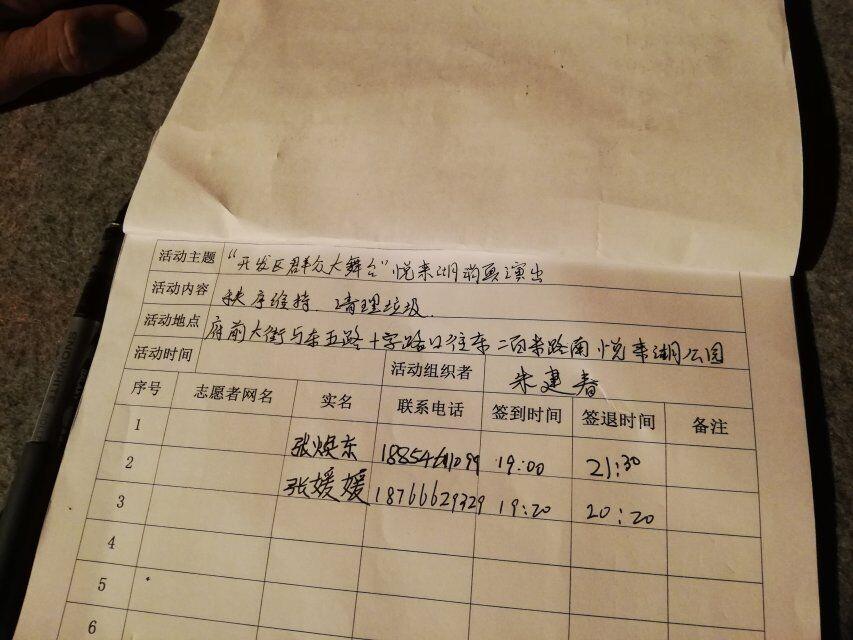 活动主题 “开发区群众大舞台”悦来湖消夏演出
活动内容 秩序维持 清理垃圾
活动地点 府前大街与东五路十字路口往东二百米路南悦来湖公园
活动时间 活动组织者 朱建春
序号 志愿者网名 实名 联系电话 签到时间 签退时间 备注
1
2 张焕东 19:00 21:30
3 张媛媛 18766629329 19:20 20:20
4
5
6